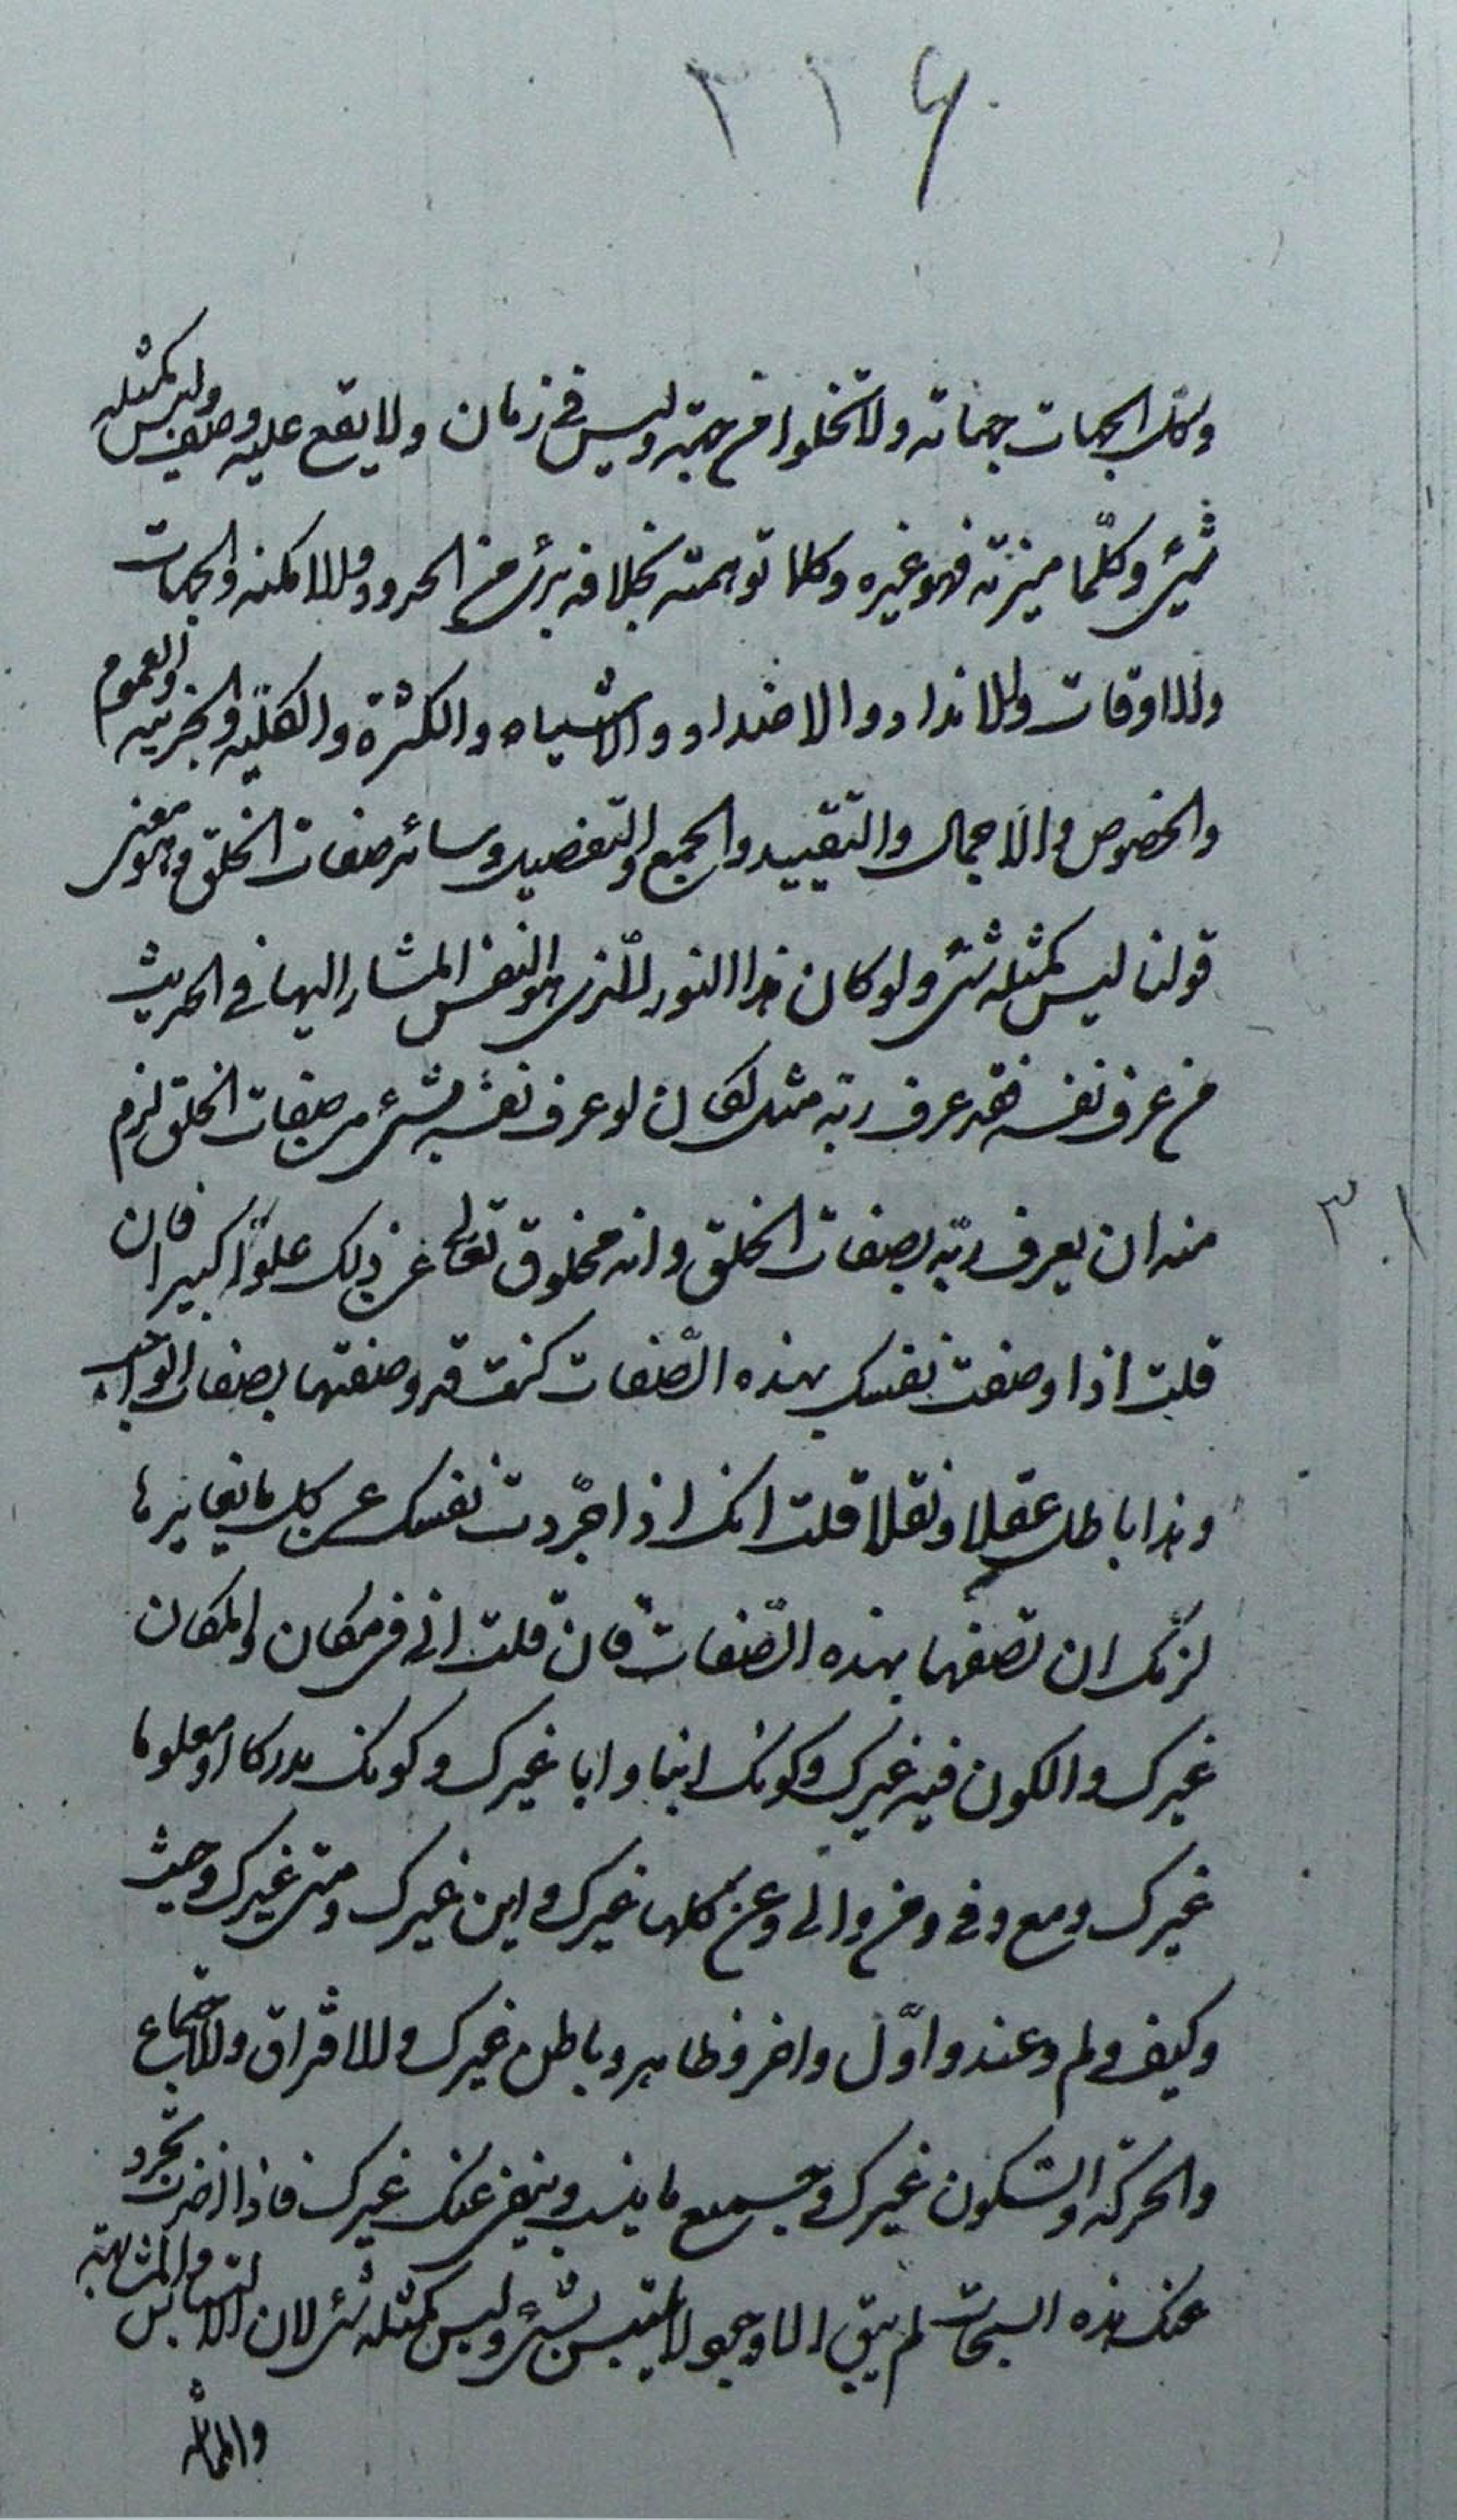 ٢١۶
وكل الجهات جهاته ولا تخلوا من جهته وليس في زمان ولا يقع عليه وصف وليس كمثله
شئ وكلّما ميزته فهو غيره وكلما توهمته بخلافه برئ من الحدود والامكنه والجهات
والاوقات والانداد والاضداد والاشباه والكثرة والكليّه والجزئيه والعموم
والخصوص والاجمال والتقييد والجمع والتفصيل وسائر صفات الخلق وهو معنى
قولنا ليس كمثله شئ ولو كان هذا النور الّذى هو النفس المشار اليها في الحديث
من عرف نفسه فقد عرف ربّه مثل لكان لو عرف نفسه بشئ من صفات الخلق لزم
منه ان يعرف ربّه بصفات الخلق وانه مخلوق تعالى عن ذلك علوّاً كبيرا فان
قلت اذا وصفت نفسك بهذه الصّفات كنت قد وصفتها بصفات الواجب
وهذا باطل عقلا ونقلا قلت انك اذا جرّدت نفسك عن كل ما يغايرها
لزمك ان تصفها بهذه الصّفات فان قلت انى في مكان والمكان
غيرك والكون فيه غيرك وكونك ابنا وابا غيرك وكونك مدركا او معلوما
غيرك ومع وفى ومن والى وعن كلها غيرك واين غيرك ومتى غيرك وحيث
وكيف ولم وعند واوّل واخر وظاهر وباطن غيرك والافتراق والاجتماع
والحركه والسّكون غيرك وجميع ما ينسب وينفى عنك غيرك فاذا اخذت تجرد
عنك هذه السبحات لم يبق الا وجود لا يقتبس بشئ وليس كمثله شئ لان الالتباس والمشابهة
والمماثله
٣٠١